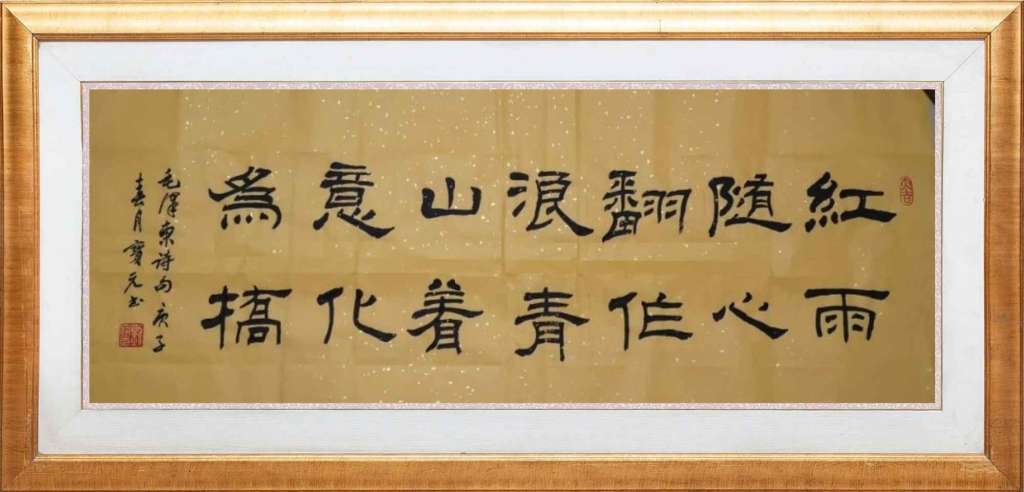 紅雨
随心
翻作
浪青
山着
意化
為橋
毛澤東詩句庚子
春月寶元书